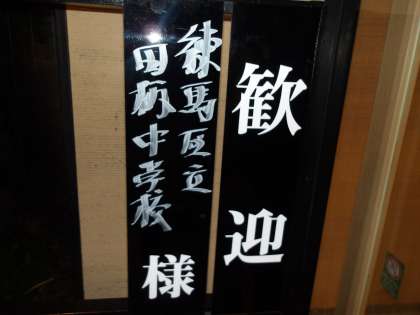 歓迎
練馬区立
田柄中学校
様